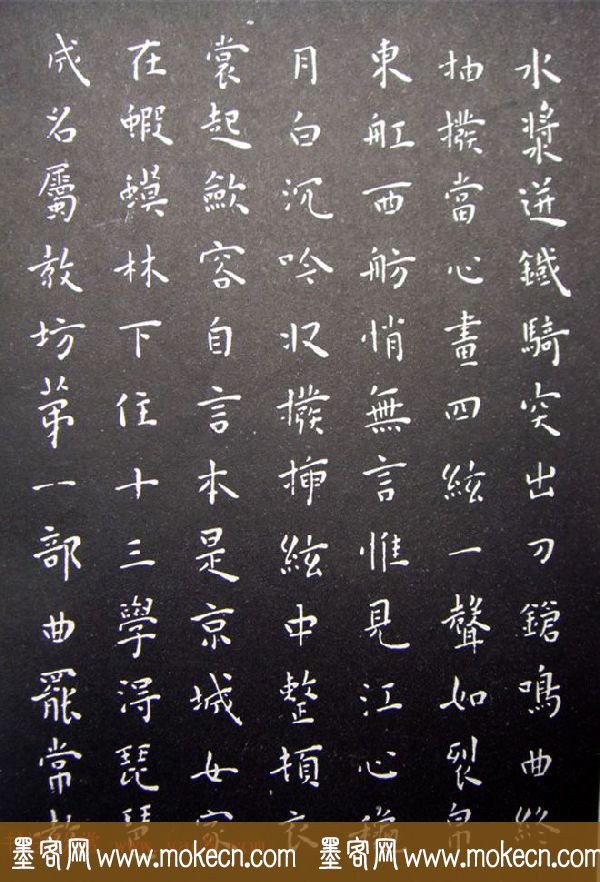 水漿迸鐵騎突出刀鎗鳴曲終
抽撥當心畫四絃一聲如裂帛
東舡西舫悄無言惟見江心
月白沉吟収撥挿絃中整頓衣
裳起歛容自言本是京城女家
在蝦蟆林下住十三學得琵琶
成名屬教坊第一部曲罷常教
墨客网 www.mokecn.com 墨客网 www.mokecn.com